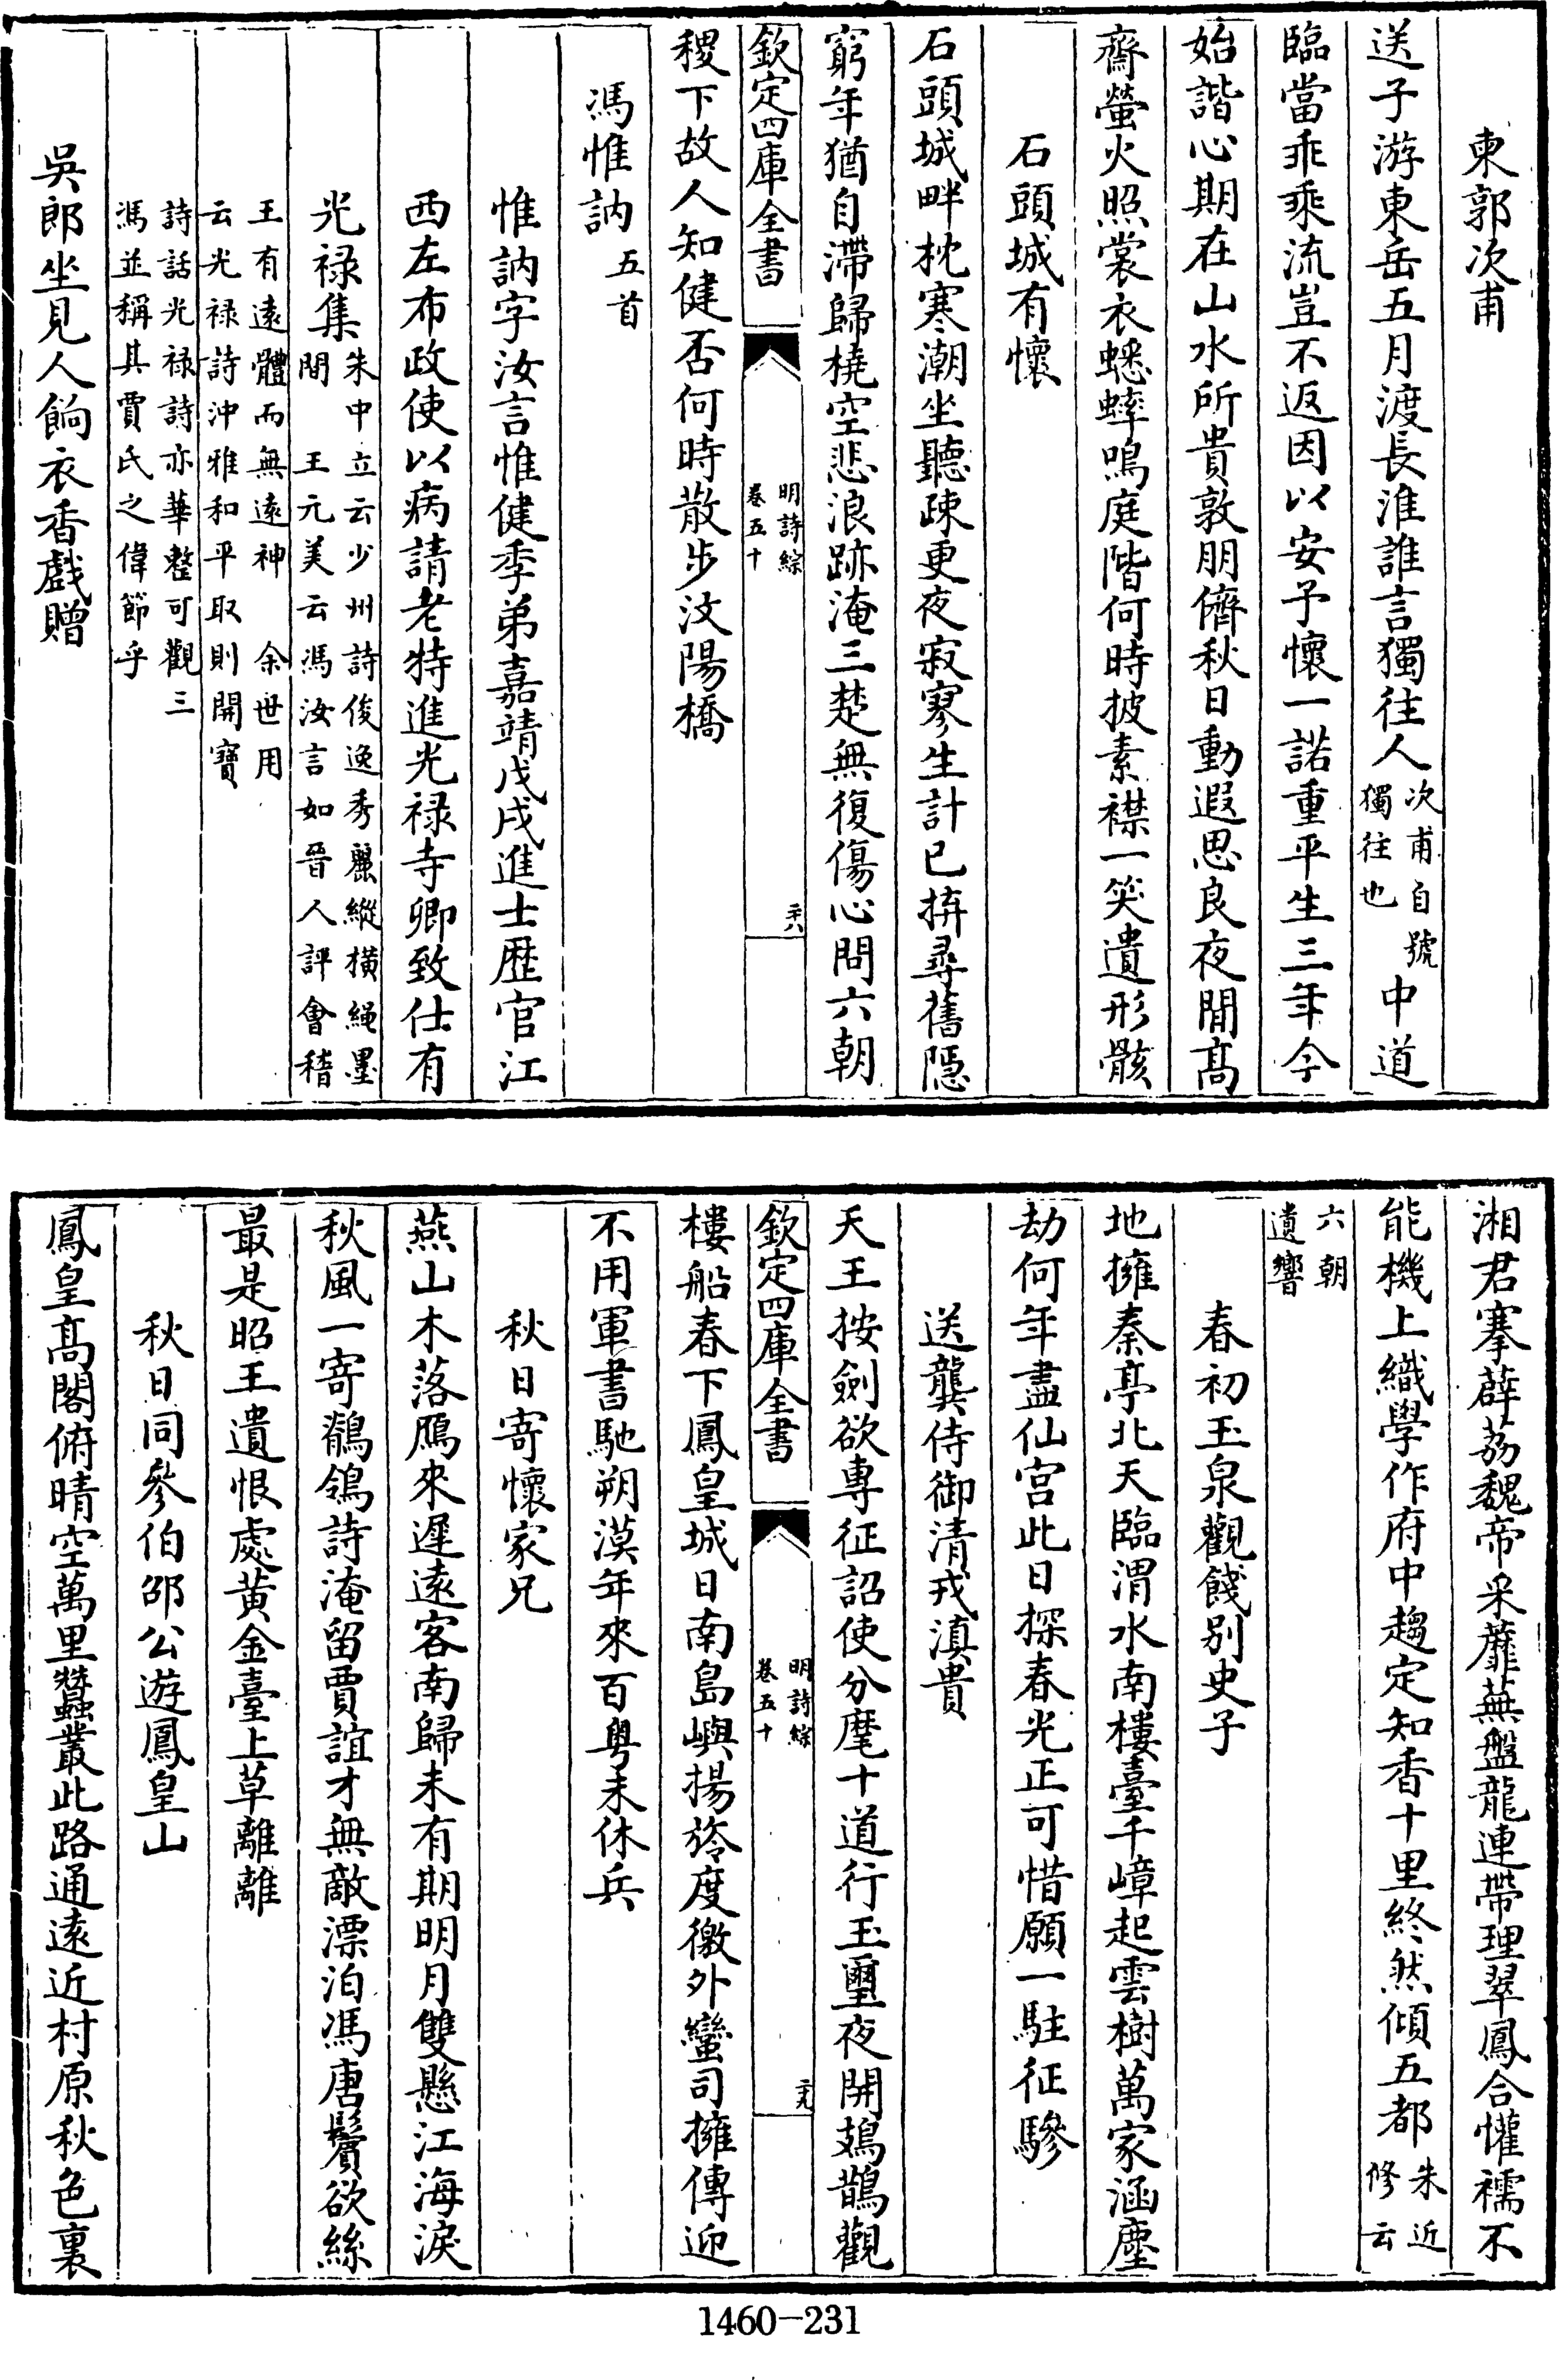 東郭次甫
送子游東岳五月渡長淮誰言獨往人次甫自號獨往也中道
臨當乖乘流豈不返因以安予懷一諾重平生三年今
始諧心期在山水所貴敦朋儕秋日動遐思良夜閒髙
齋螢火照裳衣蟋蟀鳴庭階何時披素襟一笑遺形骸
石頭城有懷
石頭城畔枕寒潮坐聽疎更夜寂寥生計已拚尋舊隱
窮年猶自滯歸橈空悲浪跡淹三楚無復傷心問六朝
欽定四庫全書
明詩綜
卷五十
二十八
稷下故人知健否何時散步汶陽橋
馮惟訥五首
惟訥字汝言惟健季弟嘉靖戊戌進士歴官江
西左布政使以病請老特進光禄寺卿致仕有
光禄集朱中立云少州詩俊逸秀麗縱橫繩墨
間　王元美云馮汝言如晉人評會稽
王有遠體而無遠神　余世用
云光禄詩沖雅和平取則開寶
詩話光禄詩亦華整可觀三
馮並稱其賈氏之偉節乎
吳郎坐見人餉衣香戲贈
湘君搴薜荔魏帝采蘼蕪盤龍連帶理翠鳳合懽襦不
能機上織學作府中趨定知香十里終然傾五都朱近修云
六朝
遺響
春初玉泉觀餞别史子
地擁秦亭北天臨渭水南樓臺千嶂起雲樹萬家涵塵
劫何年盡仙宫此日探春光正可惜願一駐征驂
送龔侍御清戎滇貴
天王按劍欲專征詔使分麾十道行玉璽夜開鳷鵲觀
欽定四庫全書
明詩綜
卷五十
二十九
樓船春下鳳皇城日南島嶼揚旍度徼外蠻司擁傳迎
不用軍書馳朔漠年來百粤未休兵
秋日寄懷家兄
燕山木落鴈來遲遠客南歸未有期明月雙懸江海淚
秋風一寄鶺鴒詩淹留賈誼才無敵漂泊馮唐鬢欲絲
最是昭王遺恨處黄金臺上草離離
秋日同參伯邵公遊鳳皇山
鳳皇髙閣俯晴空萬里蠶叢此路通遠近村原秋色裏
1460-231